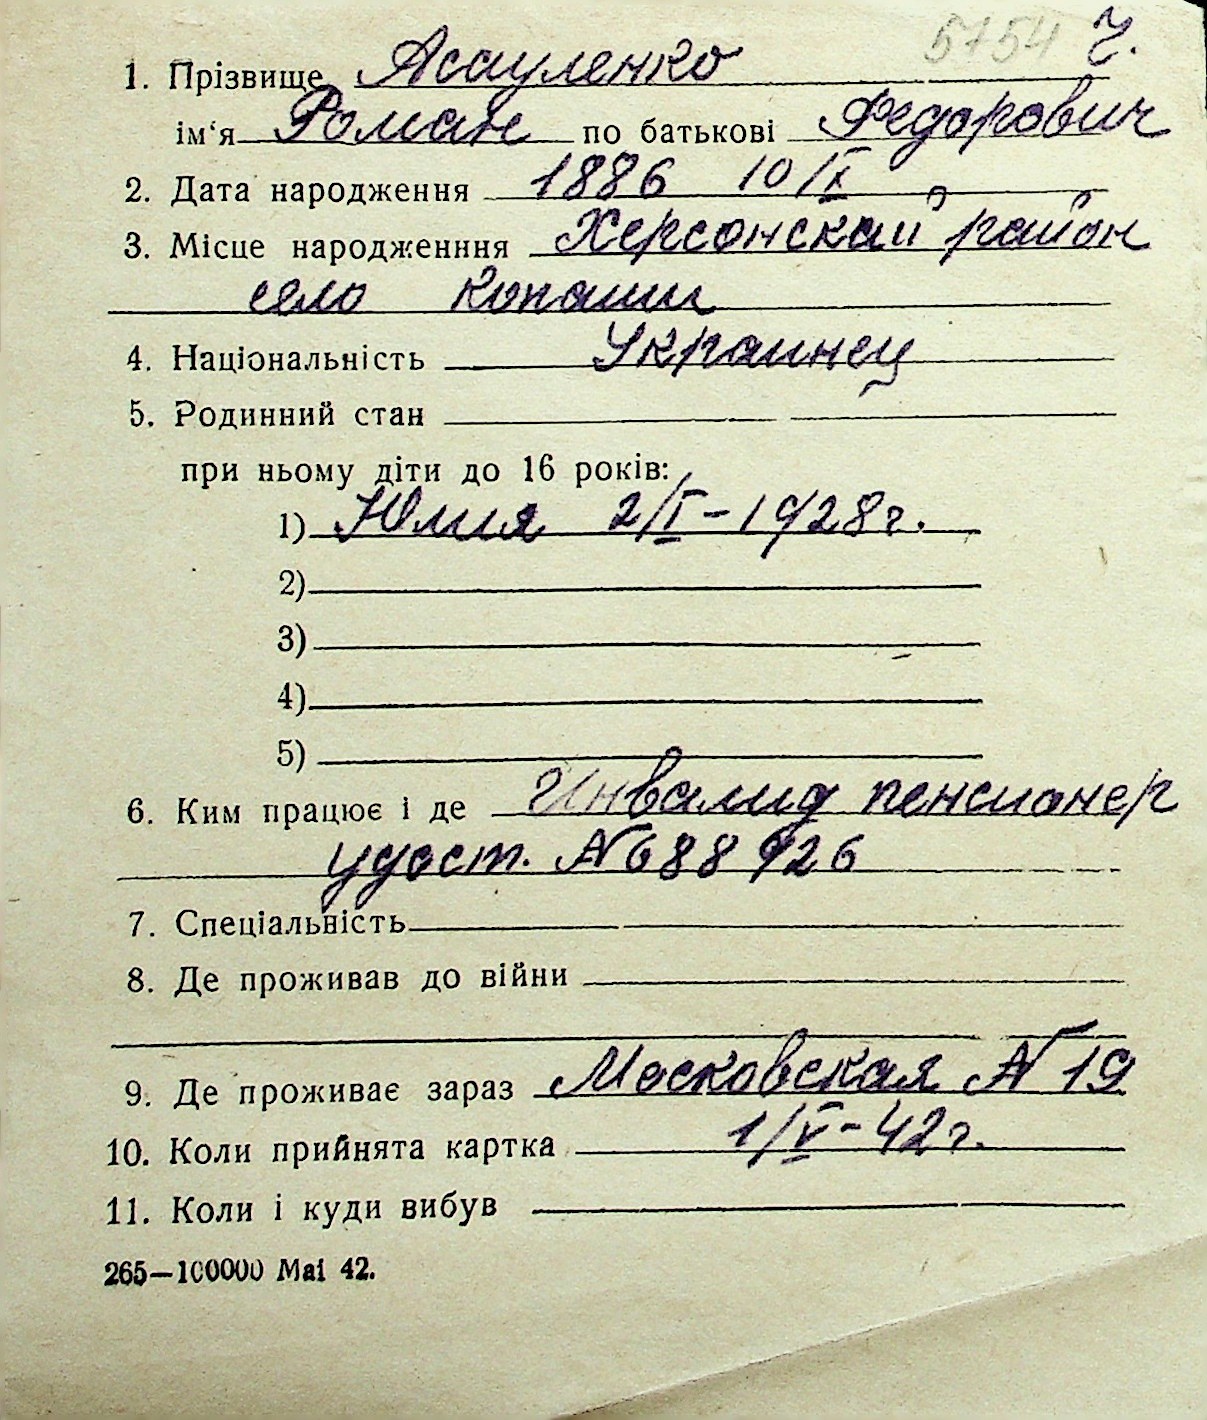 5754 Ч.
1. Прізвище Асауленко
ім‘я Роман по батькові Федорович
2. Дата народження 1886 10/X
3. Місце народженння Херсонский район
село Копани
4. Національність Украинец
5. Родинний стан
при ньому діти до 16 років:
1) Юлия 2/I-1928г.
2)
3)
4)
5)
6. Ким працює і де Инвалид пенсионер
удост. № 688926
7. Спеціальність
8. Де проживав до війни
9. Де проживає зараз Московская № 19
10. Коли прийнята картка 1/V-42г.
11. Коли і куди вибув
265—100000 Маі 42.